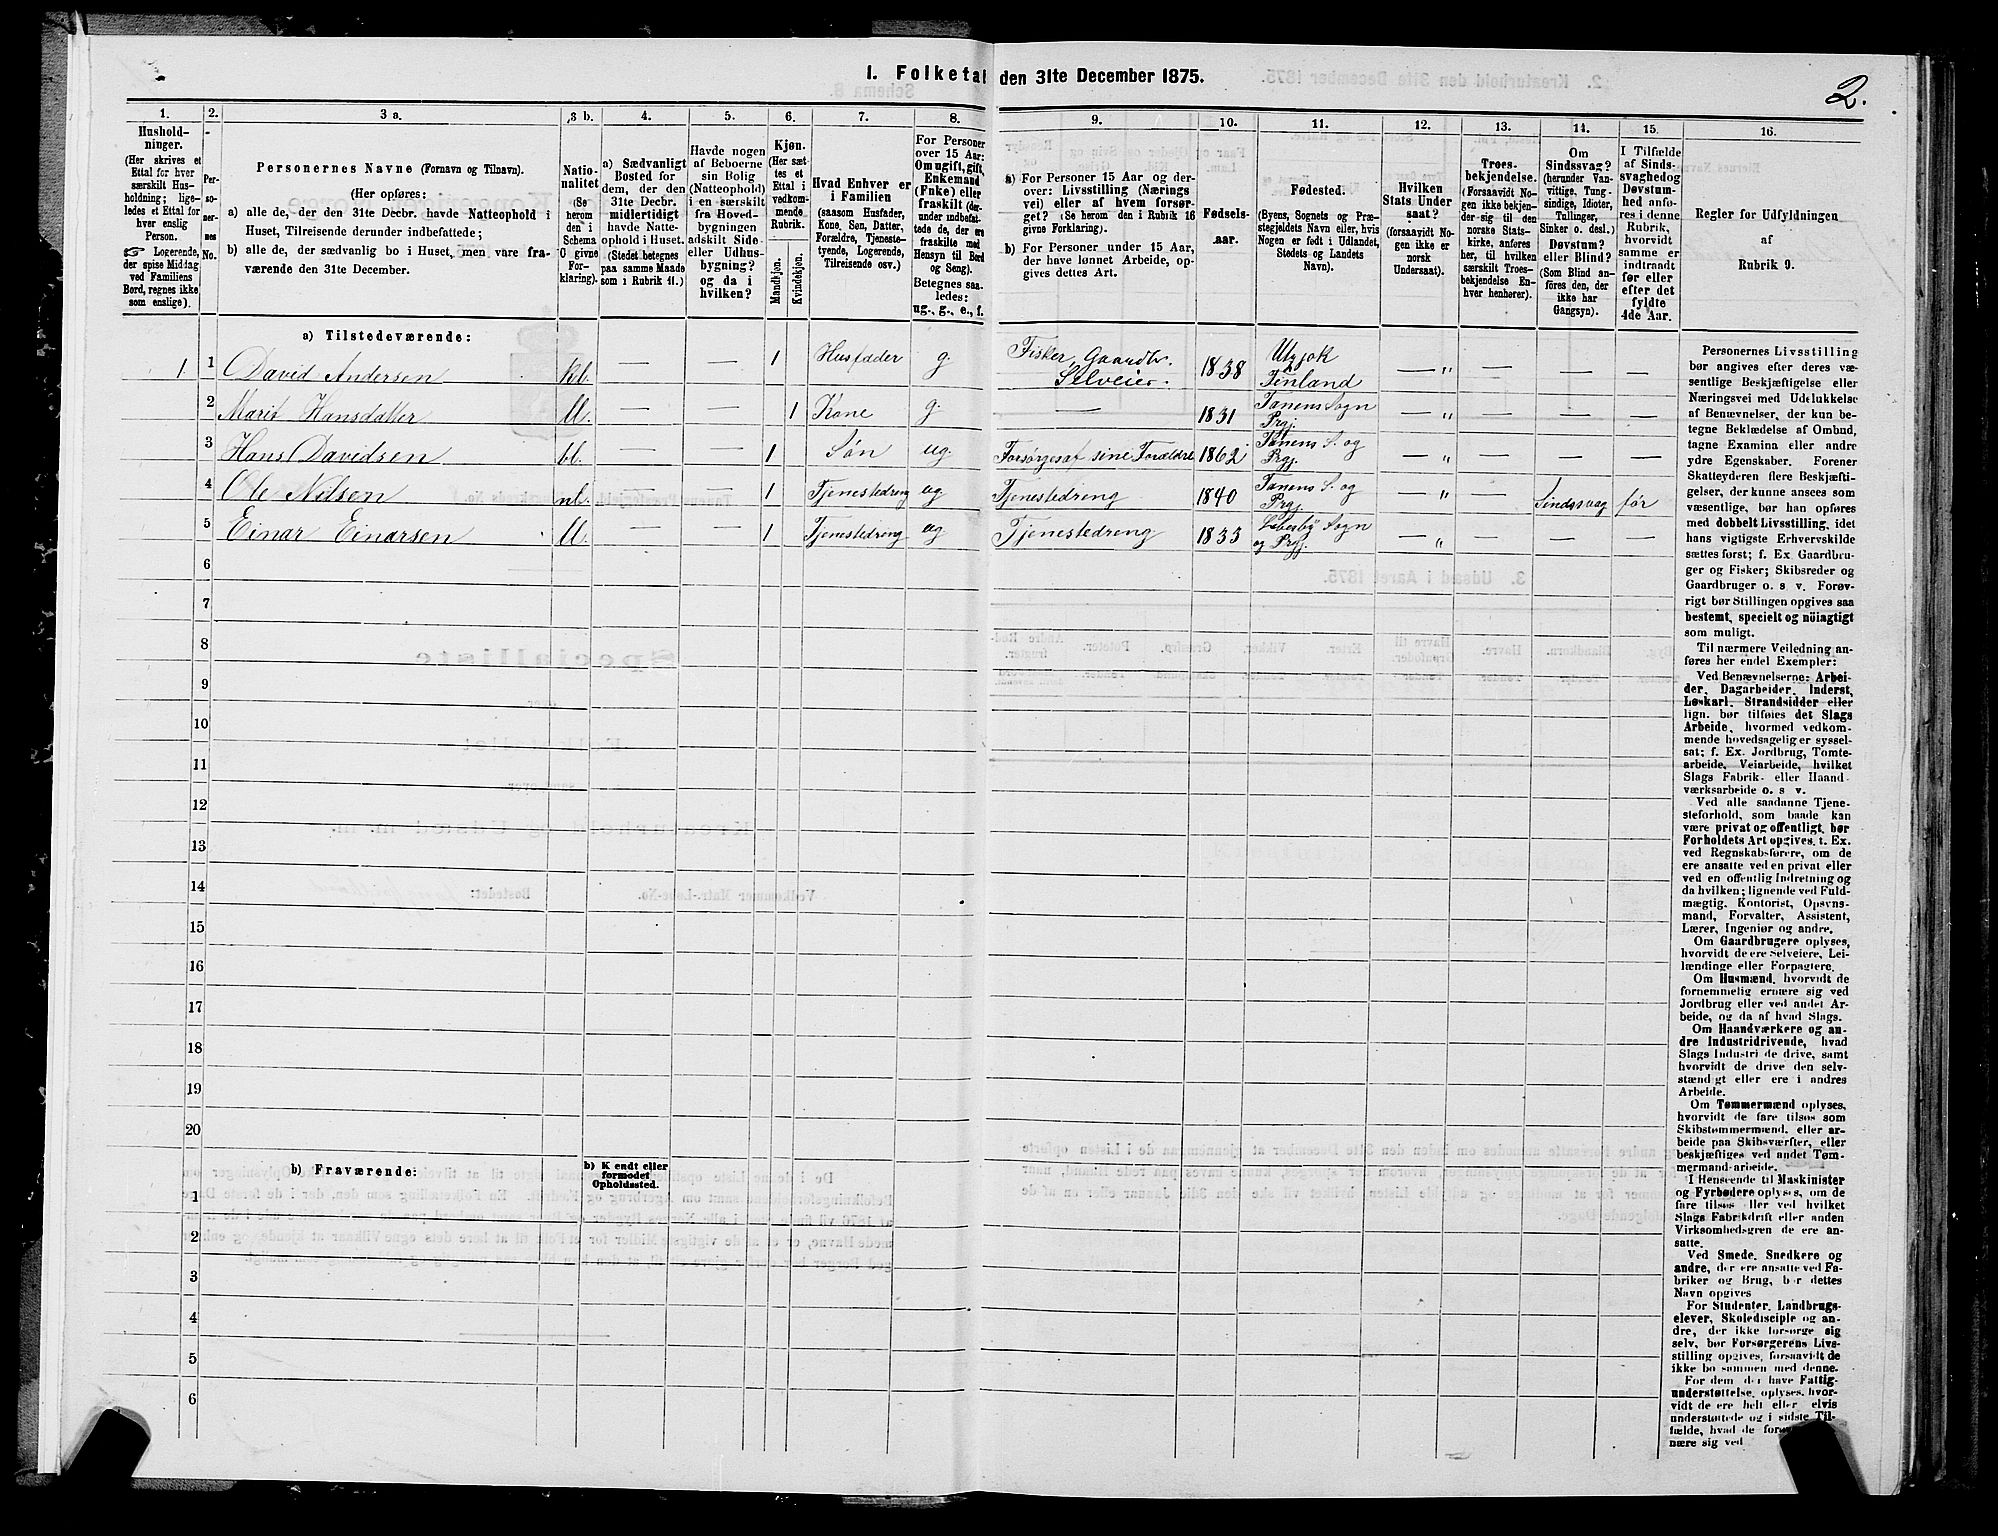 I. Folketal den 31te December 1875.
2.
1.
Hushold-
ninger.
(Her skrives et
Ettal for hver
særskilt Hus-
holdning; lige-
ledes et Ettal for
hver enslig
Person.
Logerende,
der spise Middag
ved Familiens
Bord, regnes ikke
som enslige).
2.
Per-
soner-
nes
No.
3 a.
Personernes Navne (Fornavn og Tilnavn).
(Her opføres:
a) alle de, der den 31te Decbr. havde Natteophold i
Huset, Tilreisende derunder indbefattede;
b) alle de, der sædvanlig bo i Huset, men vare fra-
værende den 31te December.
3 b.
Natio-
nalitet
(Se
herom
den i
Schema
O givne
For-
klaring).
4.
a) Sædvanligt
Bosted for
dem, der den
31te Decbr.
midlertidigt
havde Natte-
ophold i Huset.
(Stedet betegnes
paa samme Maade
som i Rubrik 11.)
5.
Havde nogen
af Beboerne
sin Bolig
(Natteophold)
i en særskilt
fra Hoved-
bygningen
adskilt Side-
eller Udhus-
bygning?
og da i
hvilken?
6.
Kjøn.
(Her sæt-
tes et
Ettal i
vedkom-
mende
Rubrik.
Mandkjøn.
Kvindekjøn.
7.
Hvad Enhver er
i Familien
(saasom Husfader,
Kone, Søn, Datter,
Forældre, Tjeneste-
tyende, Logerende,
Tilreisende osv.)
8.
For Personer
over 15 Aar:
Om ugift, gift,
Enkemand
(Enke) eller
fraskilt (der-
under indbefat-
tede de, der ere
fraskilte med
Hensyn til Bord
og Seng).
Betegnes saa-
ledes:
ug., g., e., f.
9.
a) For Personer 15 Aar og der-
over: Livsstilling (Nærings
vei) eller af hvem forsør-
get? (Se herom den i Rubrik 16
givne Forklaring).
b) For Personer under 15 Aar,
der have lønnet Arbeide, op-
gives dettes Art.
10.
Fødsels-
aar.
11.
Fødested.
(Byens, Sognets og Præ-
stegjeldets Navn eller, hvis
Nogen er født i Udlandet,
Stedets og Landets
Navn).
12.
Hvilken
Stats Under
saat?
(forsaavidt No-
gen ikke er
norsk
Undersaat).
13.
Troes-
bekjendelse.
(Forsaavidt No-
gen ikke bekjen-
der sig til den
norske Stats-
kirke, anføres
her, til hvilken
særskilt Troes-
bekjendelse En-
hver henhører).
14.
Om
Sindssvag?
(herunder Van-
vittige, Tung-
sindige, Idioter,
Tullinger,
Sinker o. desl.)
Døvstum?
eller Blind?
(Som Blind an-
føres den, der
ikke har
Gangsyn).
15.
I Tilfælde
af Sinds-
svaghed og
Døvstum-
hed anfø-
res i denne
Rubrik,
hvorvidt
samme er
indtraadt
før eller
efter det
fyldte
4de Aar.
16.
Regler for Udfyldningen
af
Rubrik 9.
a) Tilstedeværende:
1 1 David Andersen kb. — — 1 Husfader g. Fisker, Gaardbr. Selveier. 1838 Utzjok Finland — „ — — —
2 Marit Hansdatter ll. — — 1 Kone g. — 1831 Tanens Sogn Prgj. — „ — — —
3 Hans Davidsen bl. — — 1 Søn ug. Forsørges af sine Forældre 1862 Tanens S. og Prgj. — „ — — —
4 Ole Nilsen nl. — — 1 Tjenestedreng ug Tjenestedreng 1840 Tanens S. og Prgj. — „ — Sindssvag før
5 Einar Einarsen ll. — — 1 Tjenestedreng ug Tjenestedreng 1833 Lebesby Sogn og Prgj. — „ — — —
6
7
8
9
10
11
12
13
14
15
16
17
18
19
20
b) Fraværende:
b) Kjendt eller
formodet
Opholdssted.
1
2
3
4
5
6
Personernes Livsstilling
bør angives efter deres væ-
sentlige Beskjæftigelse eller
Næringsvei med Udelukkelse
af Benævnelser, der kun be-
tegne Beklædelse af Ombud,
tagne Examina eller andre
ydre Egenskaber. Forener
Skatteyderen flere Beskjæfti-
gelser, der kunne ansees som
væsentlige, bør han opføres
med dobbelt Livsstilling, idet
hans vigtigste Erhvervskilde
sættes først; f. Ex Gaardbru-
ger og Fisker; Skibsreder og
Gaardbruger o. s v. Forøv-
rigt bør Stillingen opgives saa
bestemt, specielt og nöiagtigt
som muligt.
Til nærmere Veiledning an-
føres her endel Exempler:
Ved Benævnelserne: Arbei-
der, Dagarbeider, Inderst,
Løskarl, Strandsidder eller
lign. bør tilføies det Slags
Arbeide, hvormed vedkom-
mende hovedsagelig er syssel-
sat; f. Ex. Jordbrug, Tomte-
arbeide, Veiarbeide, hvilket
Slags Fabrik- eller Haand-
værksarbeide o. s v.
Ved alle saadanne Tjene-
steforhold, som baade kan
være privat og offentligt, bør
Forholdets Art opgives, t. Ex.
ved Regnskabsførere, om de
ere ansatte ved en privat eller
ved en offentlig Indretning og
da hvilken; lignende ved Fuld-
mægtig, Kontorist, Opsyns-
mand, Forvalter, Assistent,
Lærer, Ingeniør og andre.
Om Gaardbrugere oplyses,
hvorvidt de ere Selveiere, Lei-
lændinge eller Forpagtere.
Om Husmænd, hvorvidt de
fornemmelig ernære sig ved
Jordbrug eller ved andet Ar-
beide, og da af hvad Slags.
Om Haandværkere og an-
dre Industridrivende, hvad
Slags Industri de drive, samt
hvorvidt de drive den selv-
stændigt eller ere i andres
Arbeide.
Om Tømmermænd oplyses,
hvorvidt de fare tilsøs som
Skibstømmermænd, eller ar-
beide paa Skibsværfter, eller
beskjæftiges ved andet Tøm-
mermand-arbeide.
I Henseende til Maskinister
og Fyrbødere oplyses, om de
fare tilsøs eller ved hvilket
Slags Fabrikdrift eller anden
Virksomhedsgren de ere an-
satte.
Ved Smede, Snedkere og
andre, der ere ansatte ved Fa-
briker og Brug, bør dettes
Navn opgives
For Studenter, Landbrugs-
elever, Skoledisciple og an-
dre, der ikke forsørge sig
selv, bør Forsørgerens Livs-
stilling opgives, forsaavidt de
ikke bo sammen med denne.
For dem der have Fattig-
understøttelse, oplyses, hvor-
vidt de ere helt eller elvis
understøttede og i sidste Til-
fælde, hvad de
nære sig ved